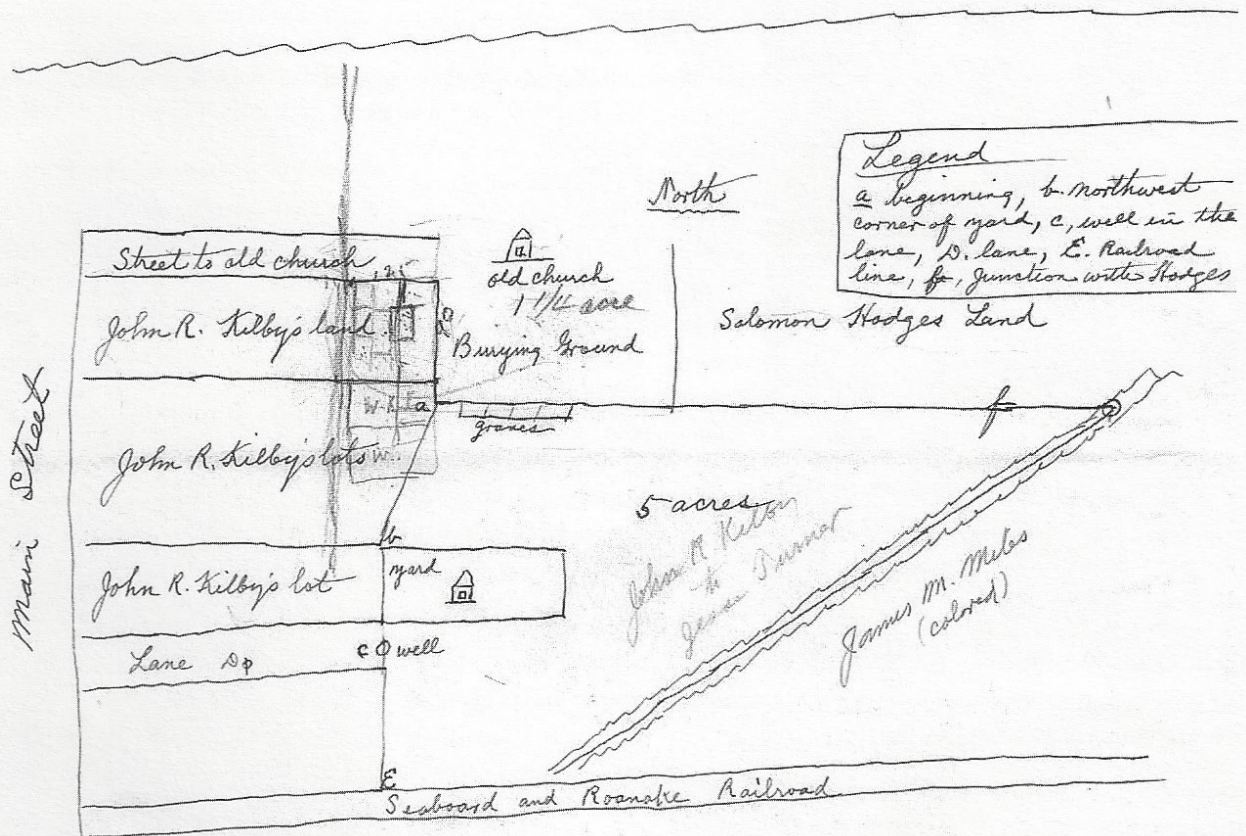 North
Legend
a beginning, b. northwest
corner of yard, c, well in the
lane, D. lane, E. Railroad
line, f, Junction with Hodges
Street to old church
old church
1 1/4 acre
Burying Ground
Solomon Hodges Land
John R. Kilby's land
W. R.
a
graves
f
John R. Kilby's lots
W.
5 acres
John R Kilby
to
Jesse Turner
James M. Miles
(colored)
b
yard
John R. Kilby's lot
c
well
Lane D
E
Seaboard and Roanoke Railroad
Main Street